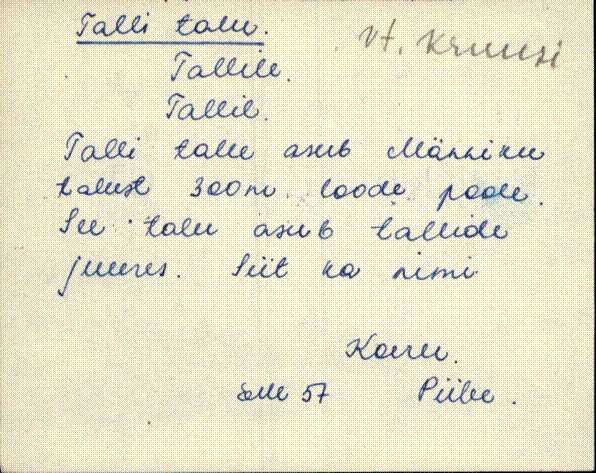 Talli talu.
Vt. Kruusi
Tallile.
Tallil.
Talli talu asub Männiku
talust 300m. loode poole.
See talu asub tallide
juures. Siit ka nimi
Koeru.
57 Piibe.